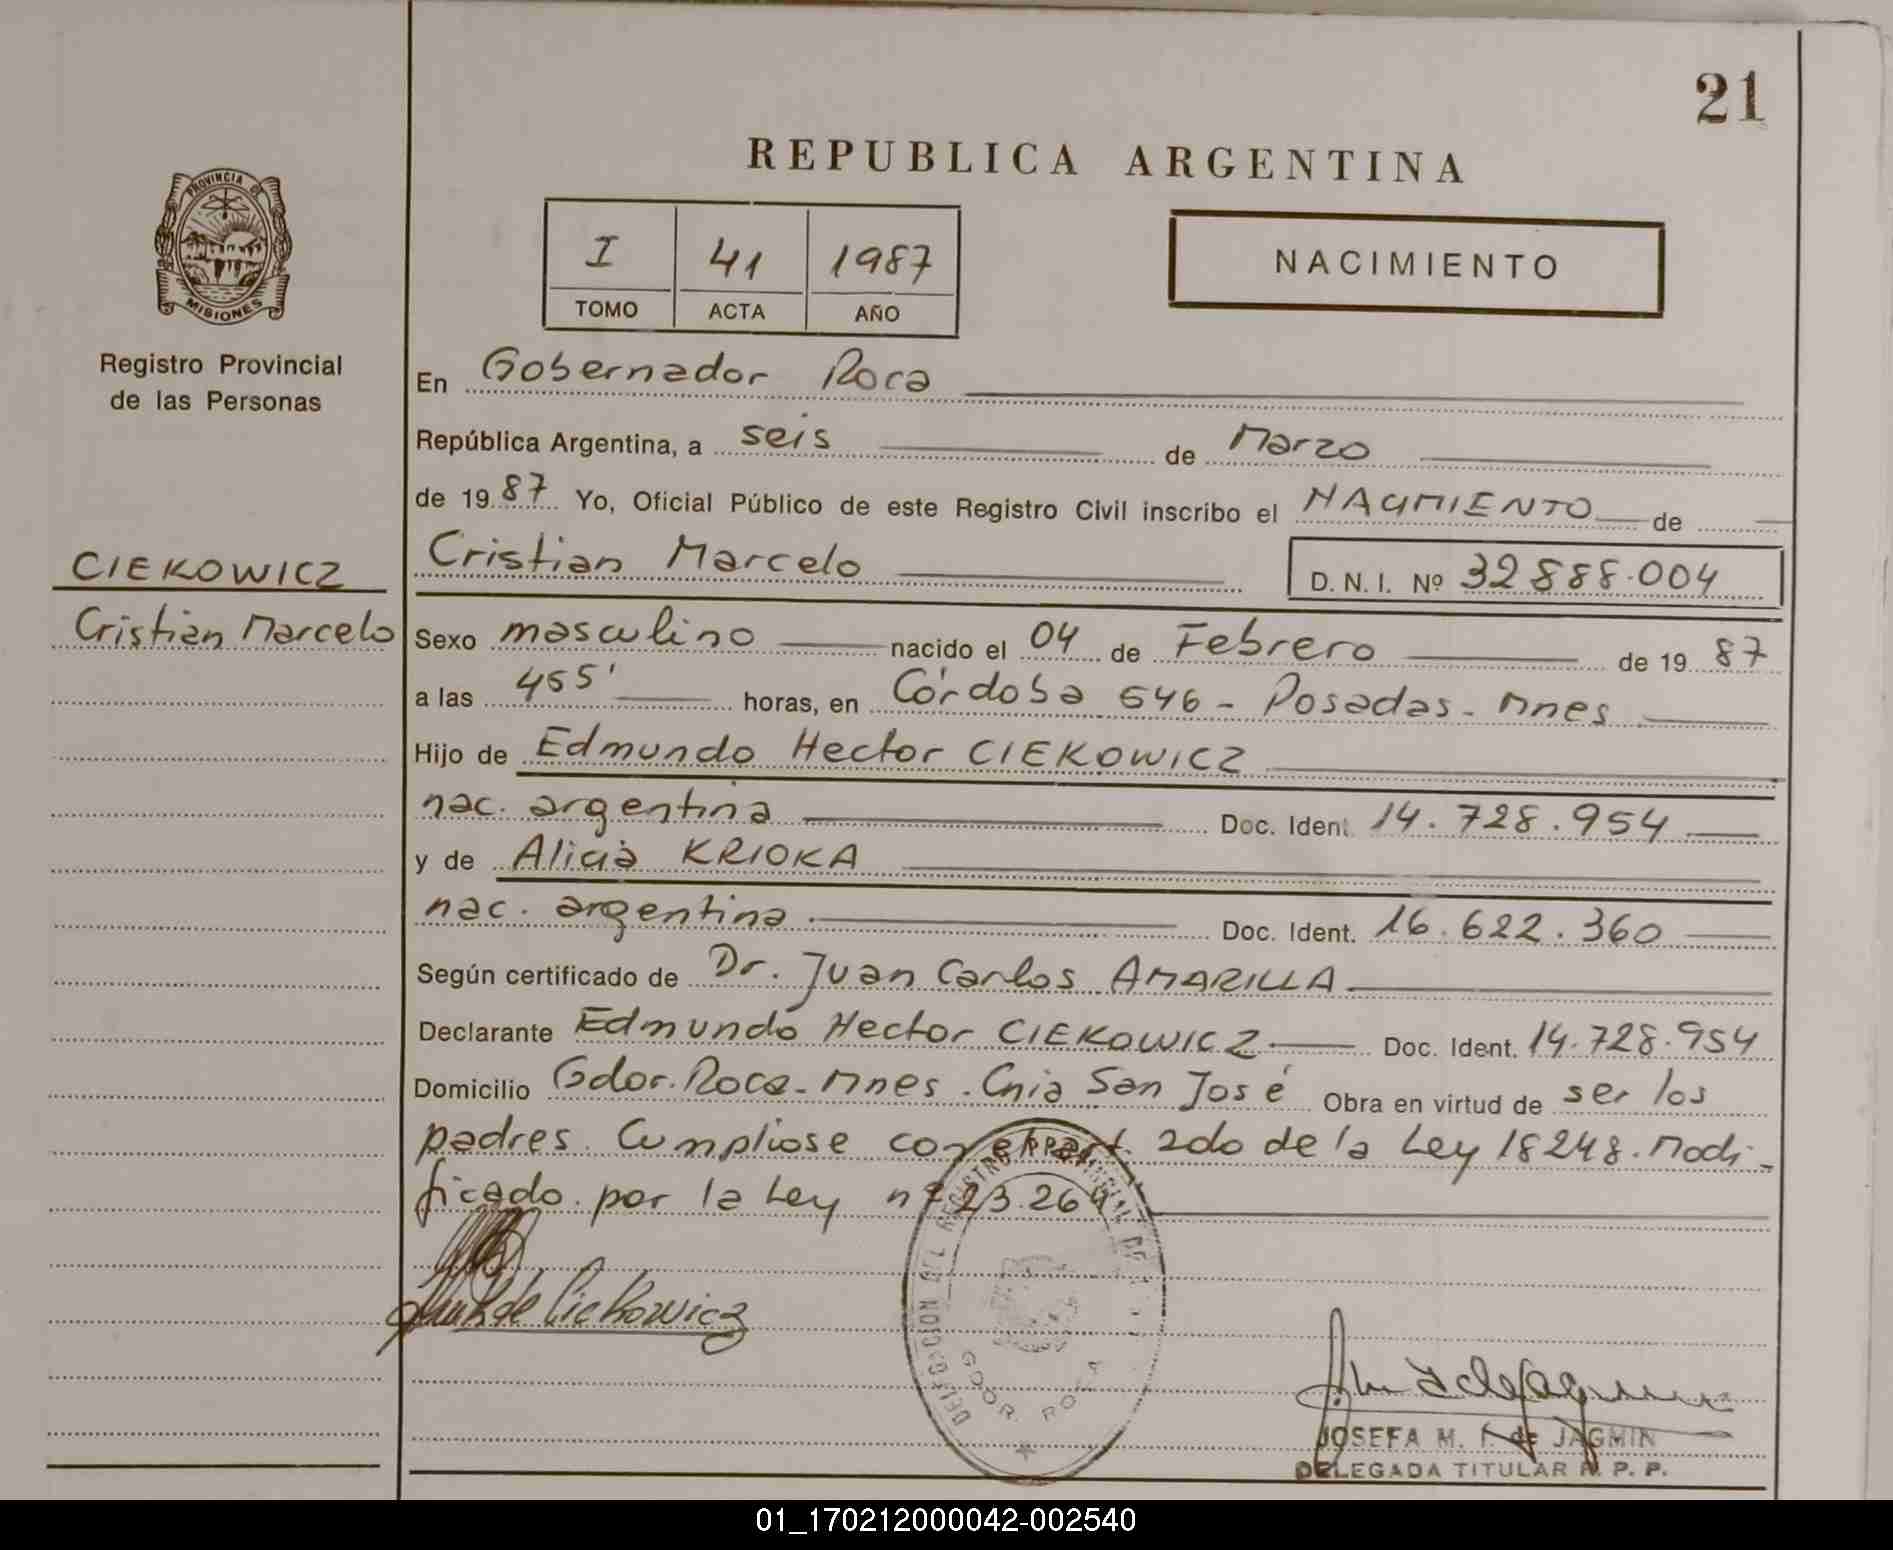 21
REPUBLICA ARGENTINA
PROVINCIA DE
MISIONES
Registro Provincial
de las Personas
I 41 1987
TOMO ACTA AÑO
NACIMIENTO
En Gobernador Roca
República Argentina, a seis de Marzo
de 1987 Yo, Oficial Público de este Registro Civil inscribo el NACIMIENTO de
CIEKOWICZ
Cristian Marcelo
Cristian Marcelo D.N.I. Nº 32888.004
Sexo masculino nacido el 04 de Febrero de 1987
a las 455' horas, en Córdoba 546 - Posadas - Mnes
Hijo de Edmundo Hector CIEKOWICZ
nac. argentina Doc. Ident. 14.728.954
y de Alicia KRIOKA
nac. argentina Doc. Ident. 16.622.360
Según certificado de Dr. Juan Carlos AMARILLA
Declarante Edmundo Hector CIEKOWICZ Doc. Ident. 14.728.954
Domicilio Gdor. Roca - Mnes. Cnia San José Obra en virtud de ser los
padres. Cumpliose con el art. 2do de la Ley 18248. Modi-
ficado por la Ley nº 23.264
de Ciekowicz
DELEGACION DEL REGISTRO PROVINCIAL DE
GDOR. ROCA
JOSEFA M. de JAGMIN
DELEGADA TITULAR R. P. P.
01_170212000042-002540